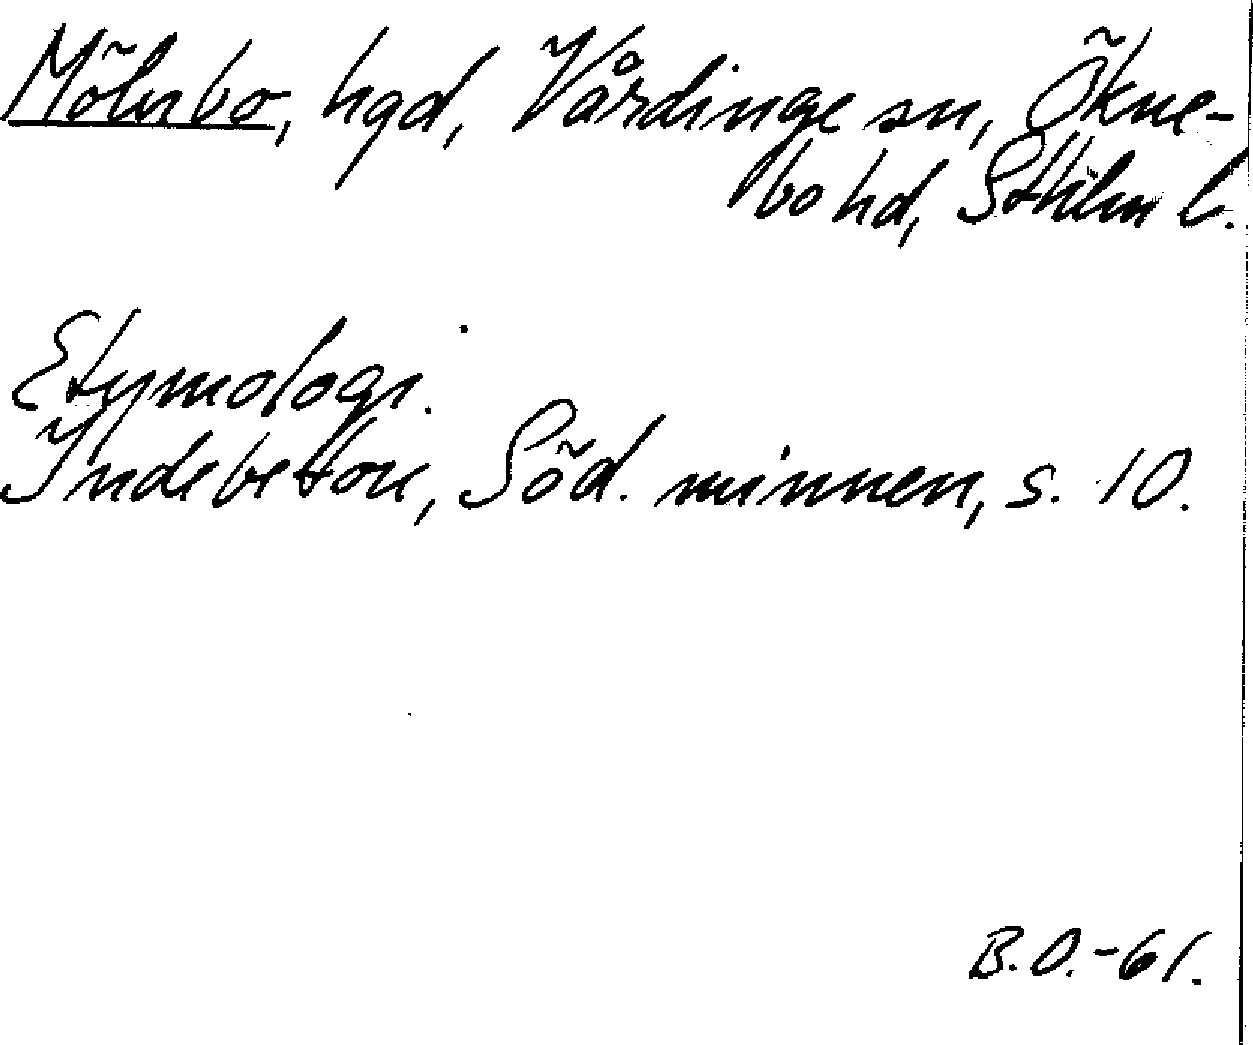 Mölnbo, hgd, Vårdinge sn, Ökne-
bo hd, Sthlm l.
Etymologi.
Indebetou, Söd. minnen, s. 10.
B.O.-61.